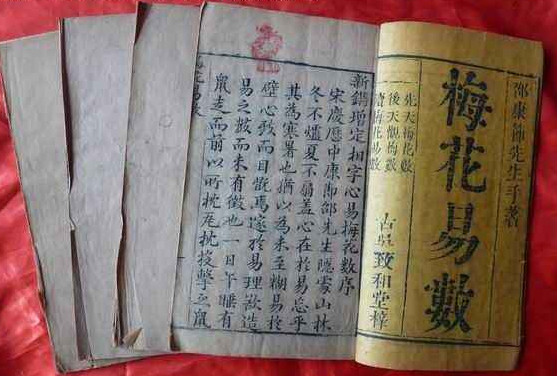 邵康節先生手著
梅花易數
先天梅花數
後天觀梅數
續梅花易數
古吳致和堂梓
新鐫增定相字心易梅花數序
宋慶曆中康節邵先生隱處山林
冬不爐夏不扇盖心在於易忘乎
其為寒暑也猶以為未至糊易於
壁心致而目翫焉邃於易理欲造
易之數而未有徵也一日午睡有
鼠走而前以所枕瓦枕投擊之鼠
梅花易數